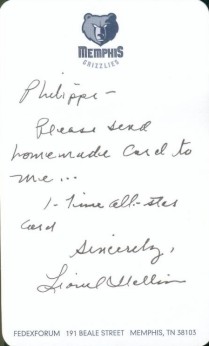 MEMPHIS
GRIZZLIES
Philippe -
Please send
homemade card to
me...
1-Time all-star
card
Sincerely,
Lionel Hollins
FEDEXFORUM 191 BEALE STREET MEMPHIS, TN 38103